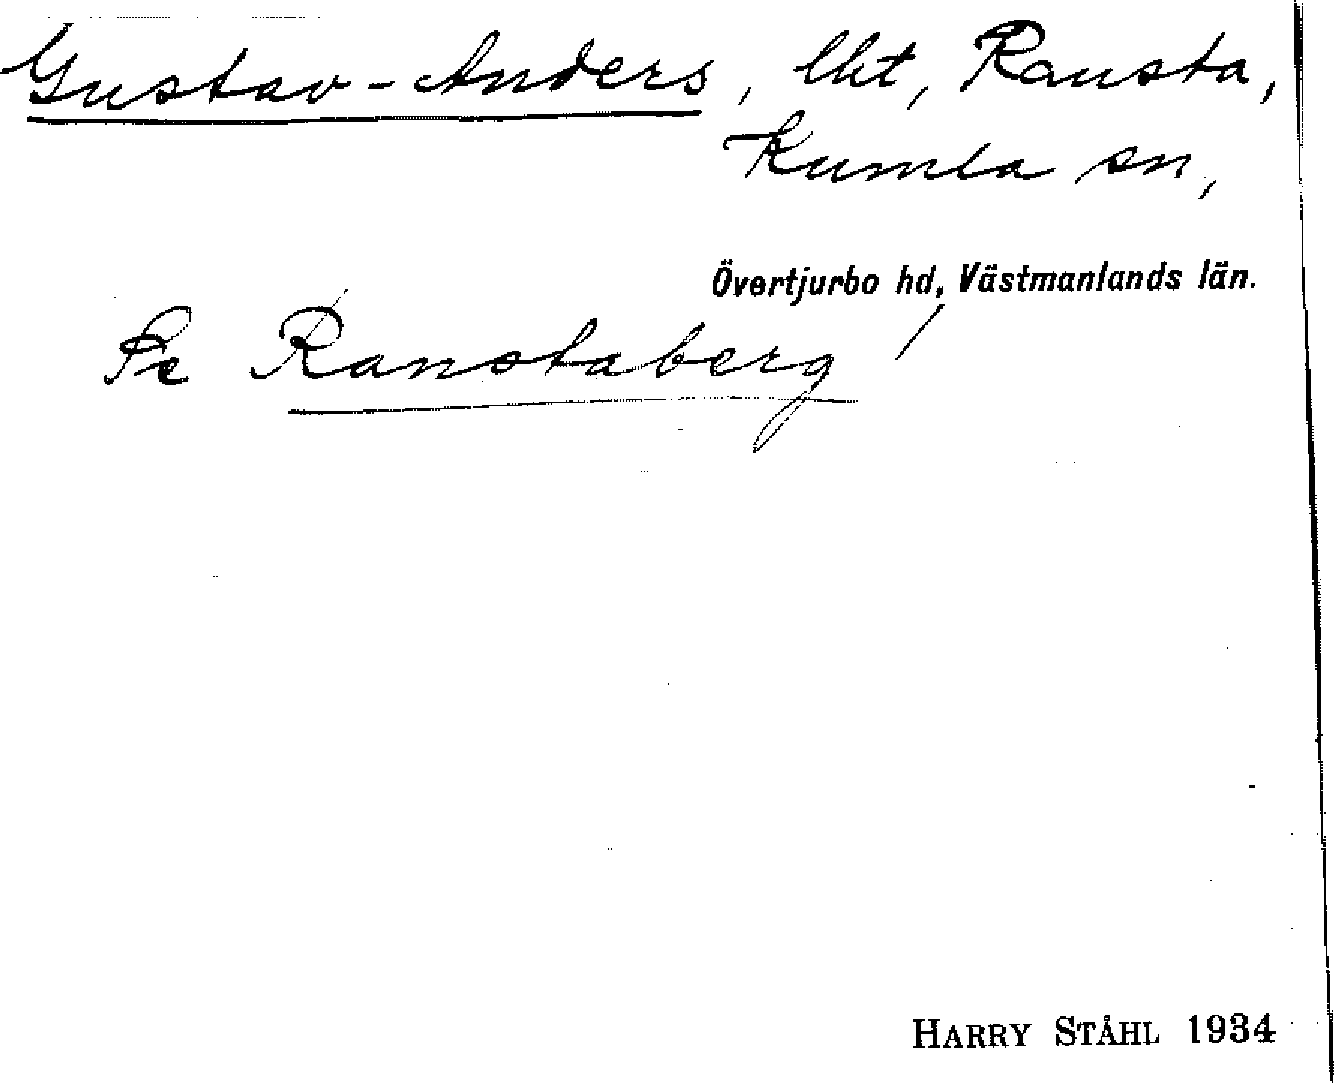 Gustav-Anders, lht, Ransta,
Kumla sn,
Övertjurbo hd, Västmanlands län.
Se Ranstaberg!
HARRY STÅHL 1934